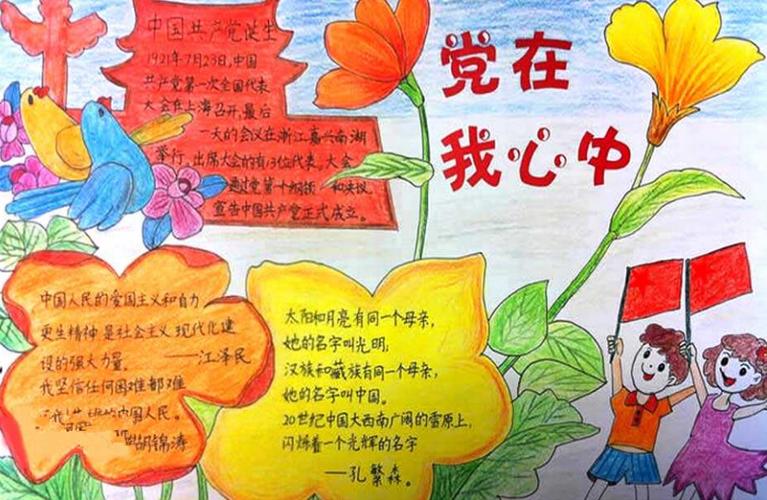 中国共产党诞生
1921年7月23日,中国
共产党第一次全国代表
大会在上海召开,最后
一天的会议在浙江嘉兴南湖
举行。出席大会的有13位代表。大会
通过党第一个纲领 和决议,
宣告中国共产党正式成立。
党在
我心中
中国人民的爱国主义和自力
更生精神是社会主义现代化建
设的强大力量。 ——江泽民
我坚信任何困难都难
的中国人民。
胡锦涛
太阳和月亮有同一个母亲,
她的名字叫光明;
汉族和藏族有同一个母亲,
她的名字叫中国。
20世纪中国大西南广阔的雪原上,
闪烁着一个光辉的名字
——孔繁森。